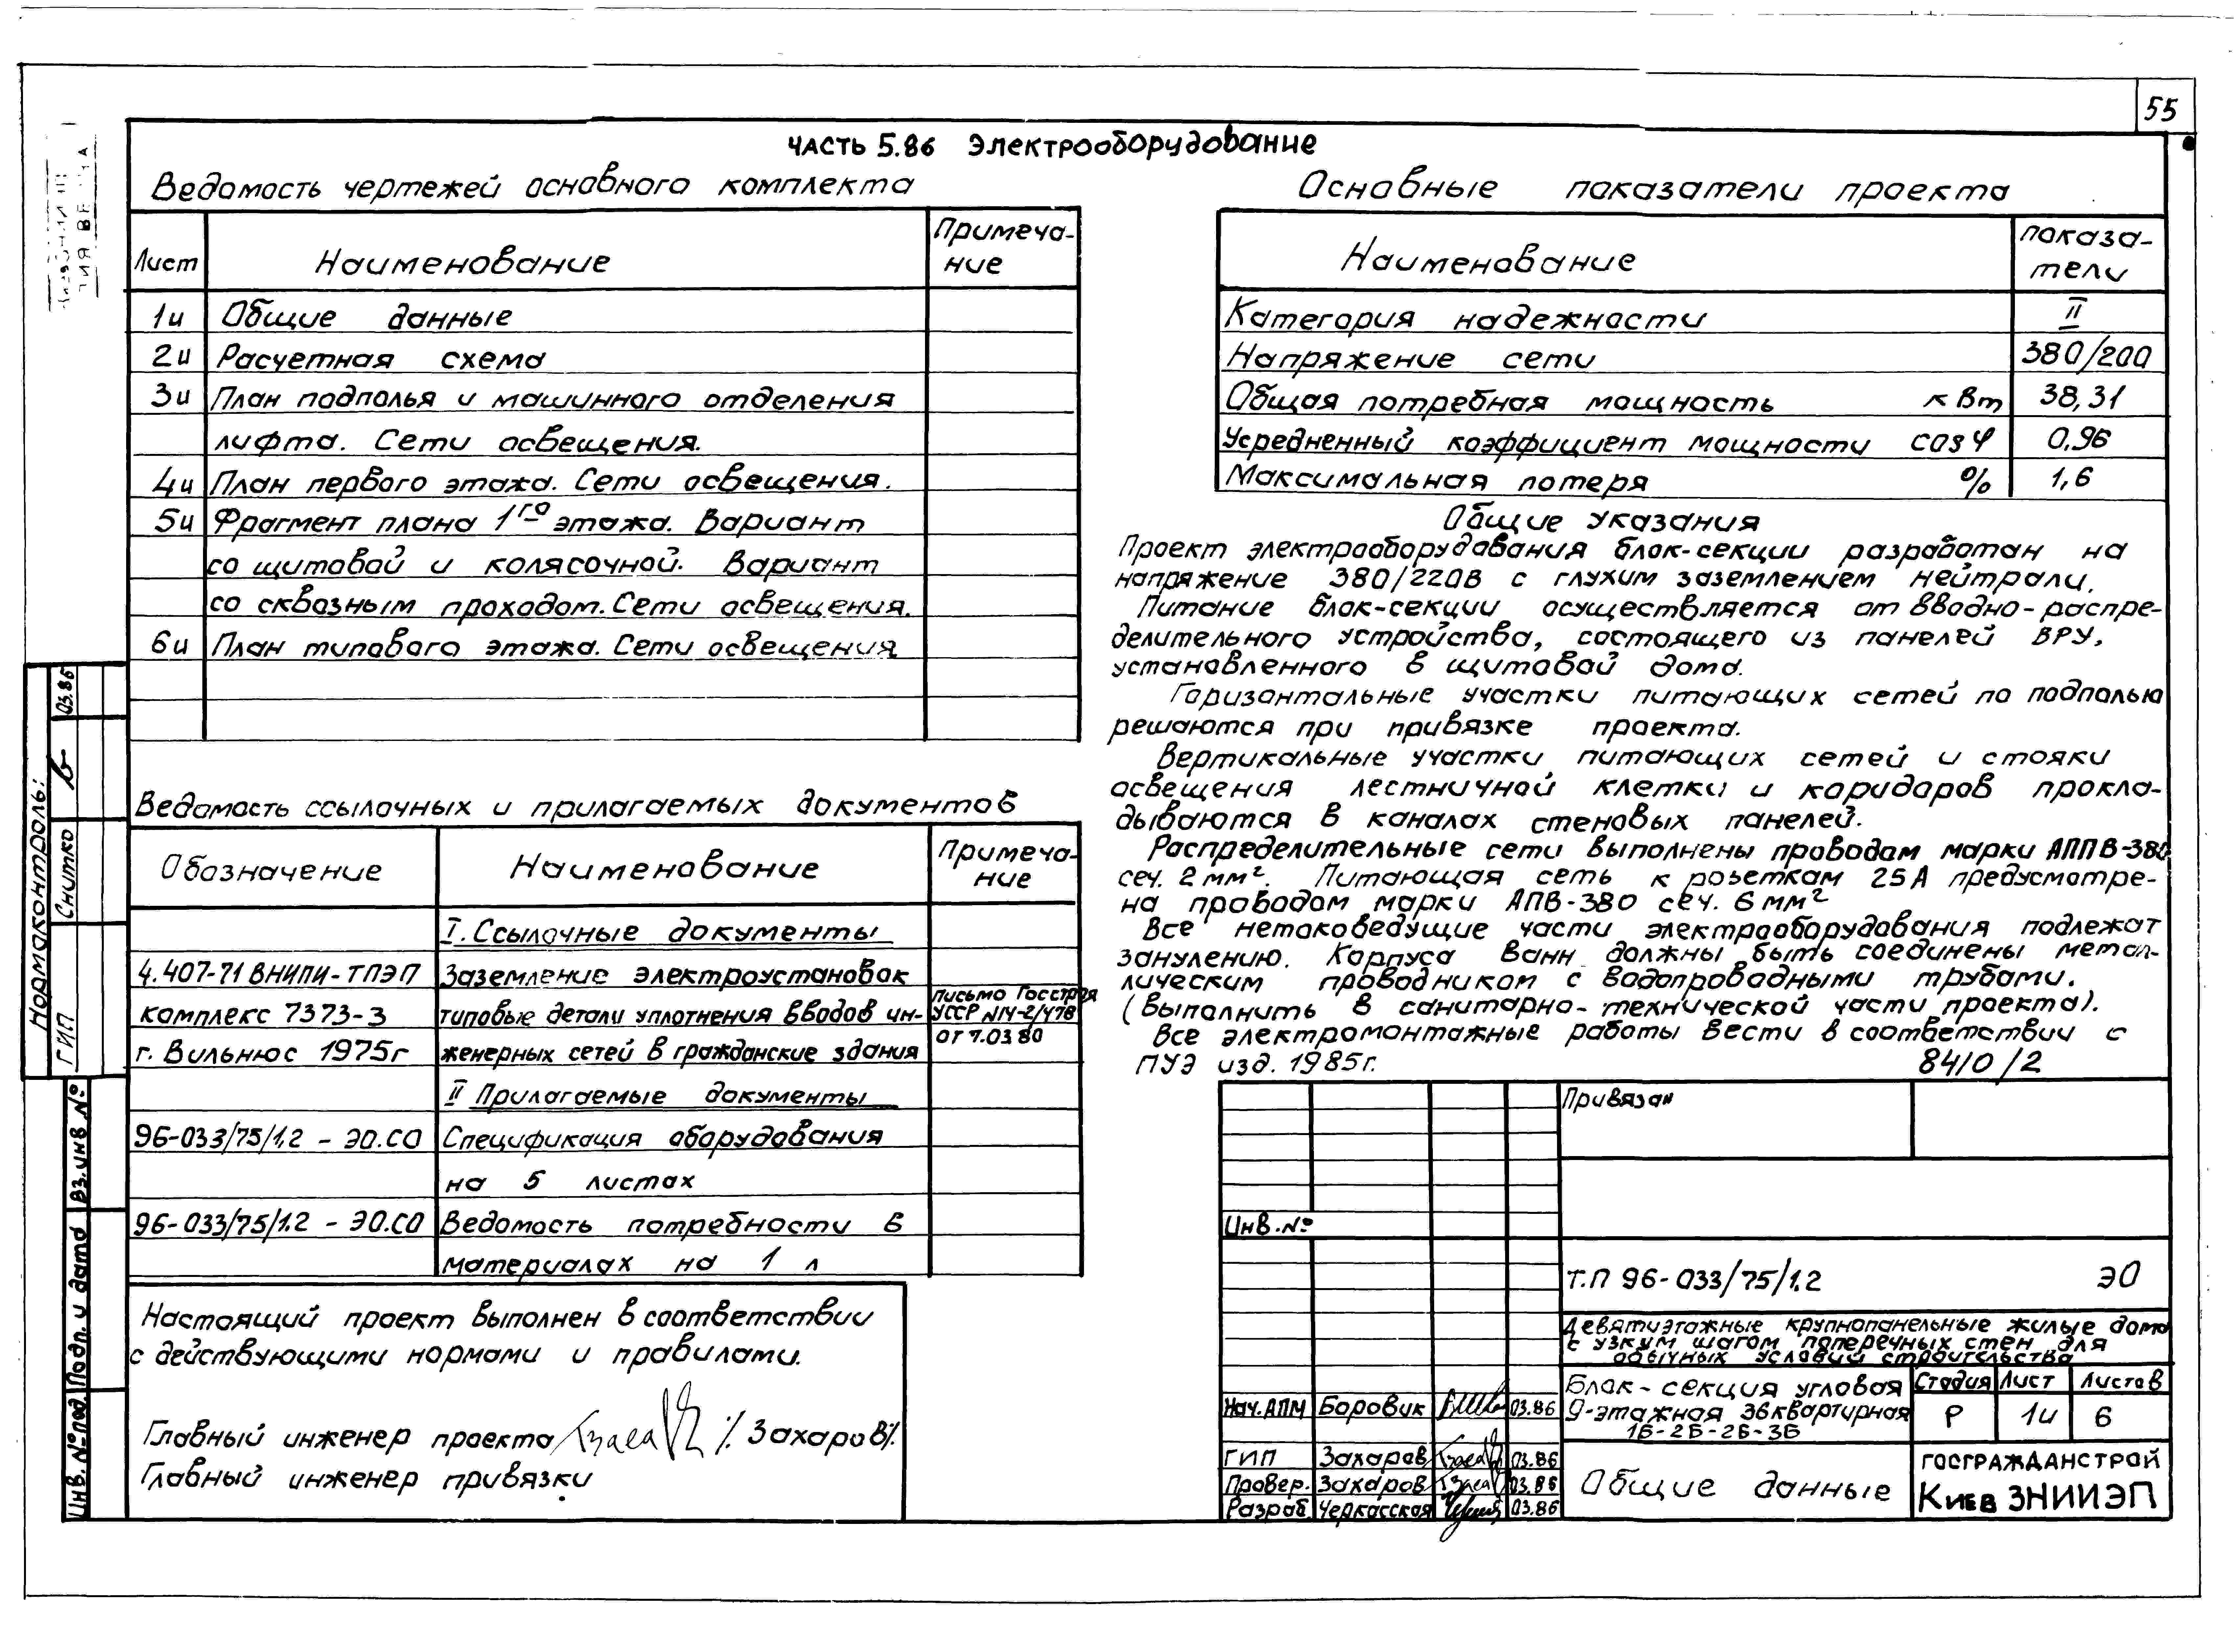 55
Часть 5.86 Электрооборудование
Ведомость чертежей основного комплекта
Лист Наименование Примеча-
ние
1и Общие данные
2и Расчетная схема
3и План подполья и машинного отделения
лифта. Сети освещения.
4и План первого этажа. Сети освещения.
5и Фрагмент плана 1го этажа. Вариант
со щитовой и колясочной. Вариант
со сквозным проходом. Сети освещения.
6и План типового этажа. Сети освещения
Ведомость ссылочных и прилагаемых документов
Обозначение Наименование Примеча-
ние
I. Ссылочные документы
4.407-71 ВНИПИ-ТПЭП Заземление электроустановок
комплекс 7373-3 типовые детали уплотнения вводов ин-
г. Вильнюс 1975г женерных сетей в гражданские здания
письмо Госстроя
УССР №14-2/478
от 7.03 80
II Прилагаемые документы
96-033/75/1.2 - ЭО.СО Спецификация оборудования
на 5 листах
96-033/75/1.2 - ЭО.СО Ведомость потребности в
материалах на 1 л
Настоящий проект выполнен в соответствии
с действующими нормами и правилами.
Главный инженер проекта /Захаров/
Главный инженер привязки
Основные показатели проекта
Наименование показа-
тели
Категория надежности II
Напряжение сети 380/200
Общая потребная мощность кВт 38,31
Усредненный коэффициент мощности cos φ 0,96
Максимальная потеря % 1,6
Общие указания
Проект электрооборудования блок-секции разработан на
напряжение 380/220в с глухим заземлением нейтрали.
Питание блок-секции осуществляется от вводно-распре-
делительного устройства, состоящего из панелей ВРУ,
установленного в щитовой дома.
Горизонтальные участки питающих сетей по подполью
решаются при привязке проекта.
Вертикальные участки питающих сетей и стояки
освещения лестничной клетки и коридоров прокла-
дываются в каналах стеновых панелей.
Распределительные сети выполнены проводом марки АППВ-380
сеч. 2мм². Питающая сеть к розеткам 25А предусмотре-
на проводом марки АПВ-380 сеч. 6 мм²
Все нетоковедущие части электрооборудования подлежат
занулению. Корпуса ванн должны быть соединены метал-
лическим проводником с водопроводными трубами.
(Выполнить в санитарно-технической части проекта).
Все электромонтажные работы вести в соответствии с
ПУЭ изд. 1985г.
8410/2
Привязан
Инв. №
Т.П 96-033/75/1.2 ЭО
Девятиэтажные крупнопанельные жилые дома
с узким шагом поперечных стен для
обычных условий строительства
Блок-секция угловая
9-этажная 36квартирная
1Б-2Б-2Б-3Б
Стадия Лист Листов
Р 1и 6
Общие данные
ГОСГРАЖДАНСТРОЙ
Киев ЗНИИЭП
Нач. АПМ Боровик 03.86
ГИП Захаров 03.86
Провер. Захаров 03.86
Разраб Черкасская 03.86
Нормаконтроль:
ГИП Снитко 03.86
Вз.инв №
Подп. и дата
Инв. №под.